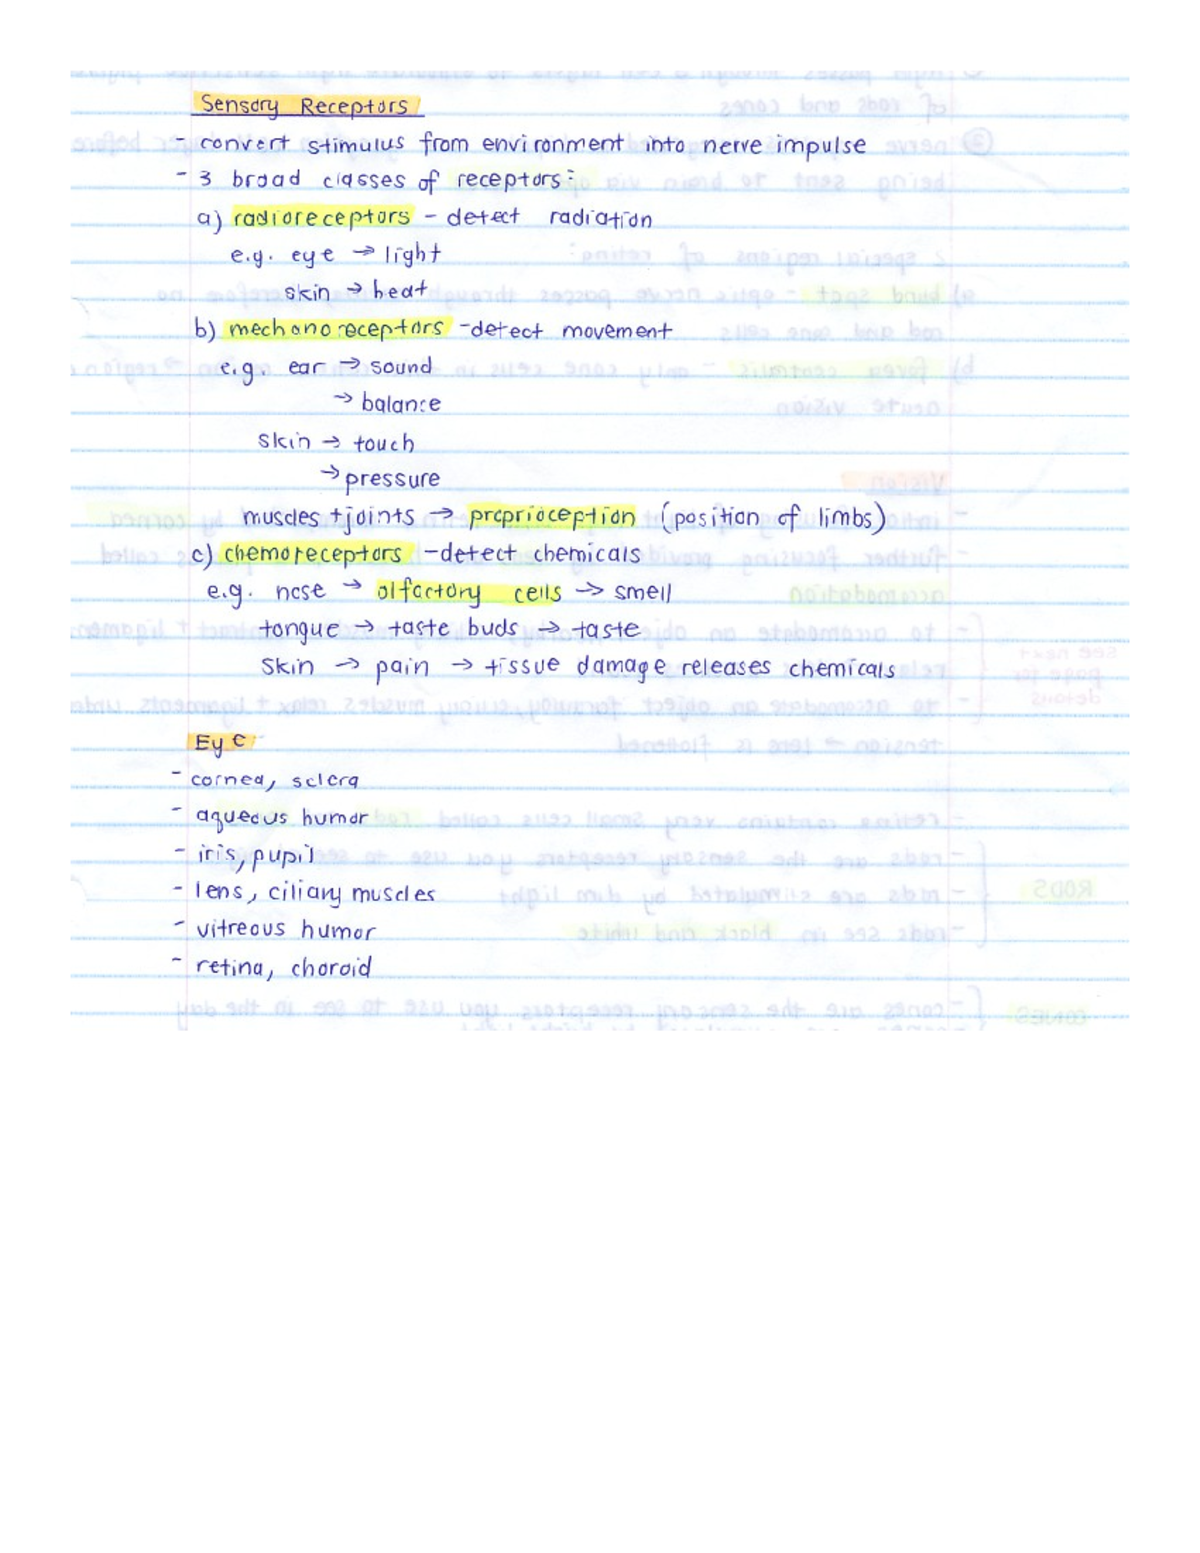 Sensory Receptors
- convert stimulus from environment into nerve impulse
- 3 broad classes of receptors:
a) radioreceptors - detect radiation
e.g. eye → light
skin → heat
b) mechanoreceptors - detect movement
e.g. ear → sound
→ balance
skin → touch
→ pressure
muscles + joints → proprioception (position of limbs)
c) chemoreceptors - detect chemicals
e.g. nose → olfactory cells → smell
tongue → taste buds → taste
skin → pain → tissue damage releases chemicals
Eye
- cornea, sclera
- aqueous humor
- iris, pupil
- lens, ciliary muscles
- vitreous humor
- retina, choroid